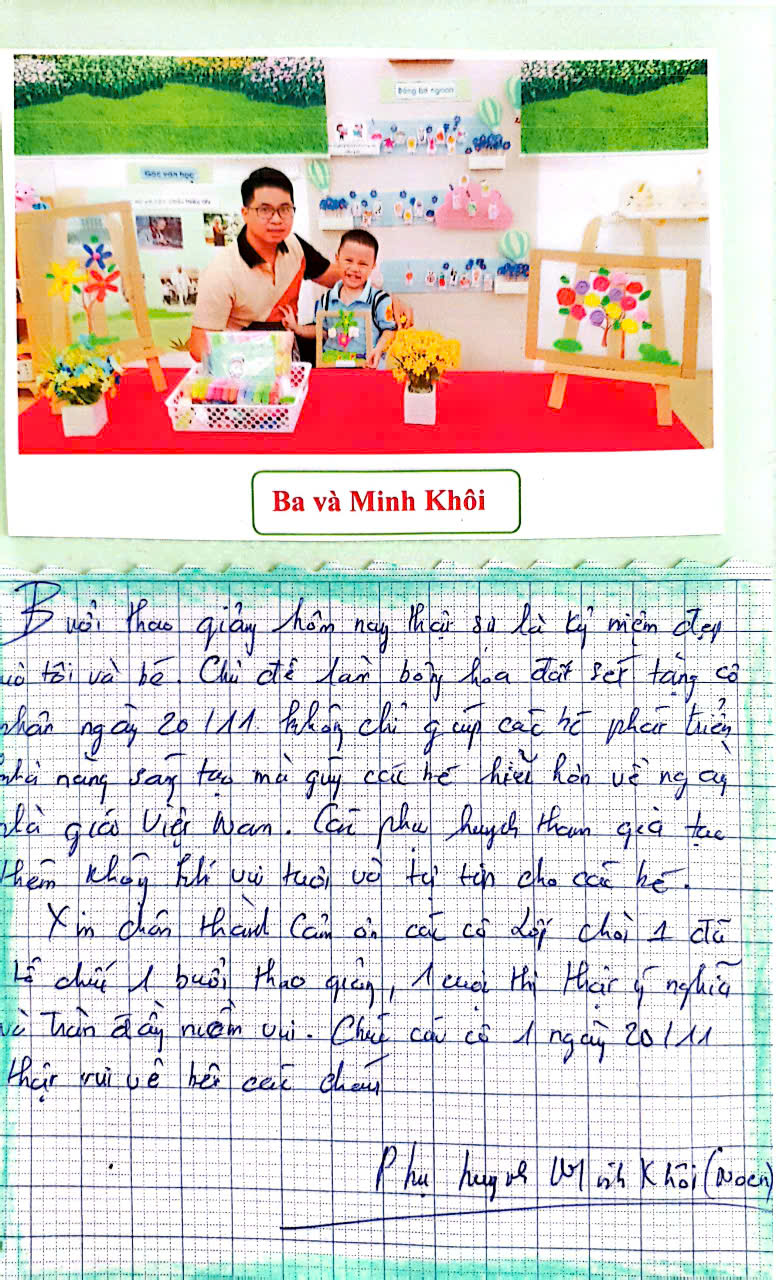 Bông bé ngoan
Góc văn học
Ba và Minh Khôi
Buổi thao giảng hôm nay thật sự là kỷ niệm đẹp
với tôi và bé. Chủ đề làm bông hoa đất sét tặng cô
nhân ngày 20/11 không chỉ giúp các bé phát triển
khả năng sáng tạo mà giúp các bé hiểu hơn về ngày
nhà giáo Việt Nam. Các phụ huynh tham gia tạo
thêm không khí vui tươi và tự tin cho các bé.
Xin chân thành cảm ơn các cô lớp chồi 1 đã
tổ chức 1 buổi thao giảng, 1 cuộc thi thật ý nghĩa
và tràn đầy niềm vui. Chúc các cô 1 ngày 20/11
thật vui vẻ bên các cháu
Phụ huynh Minh Khôi (Noen)